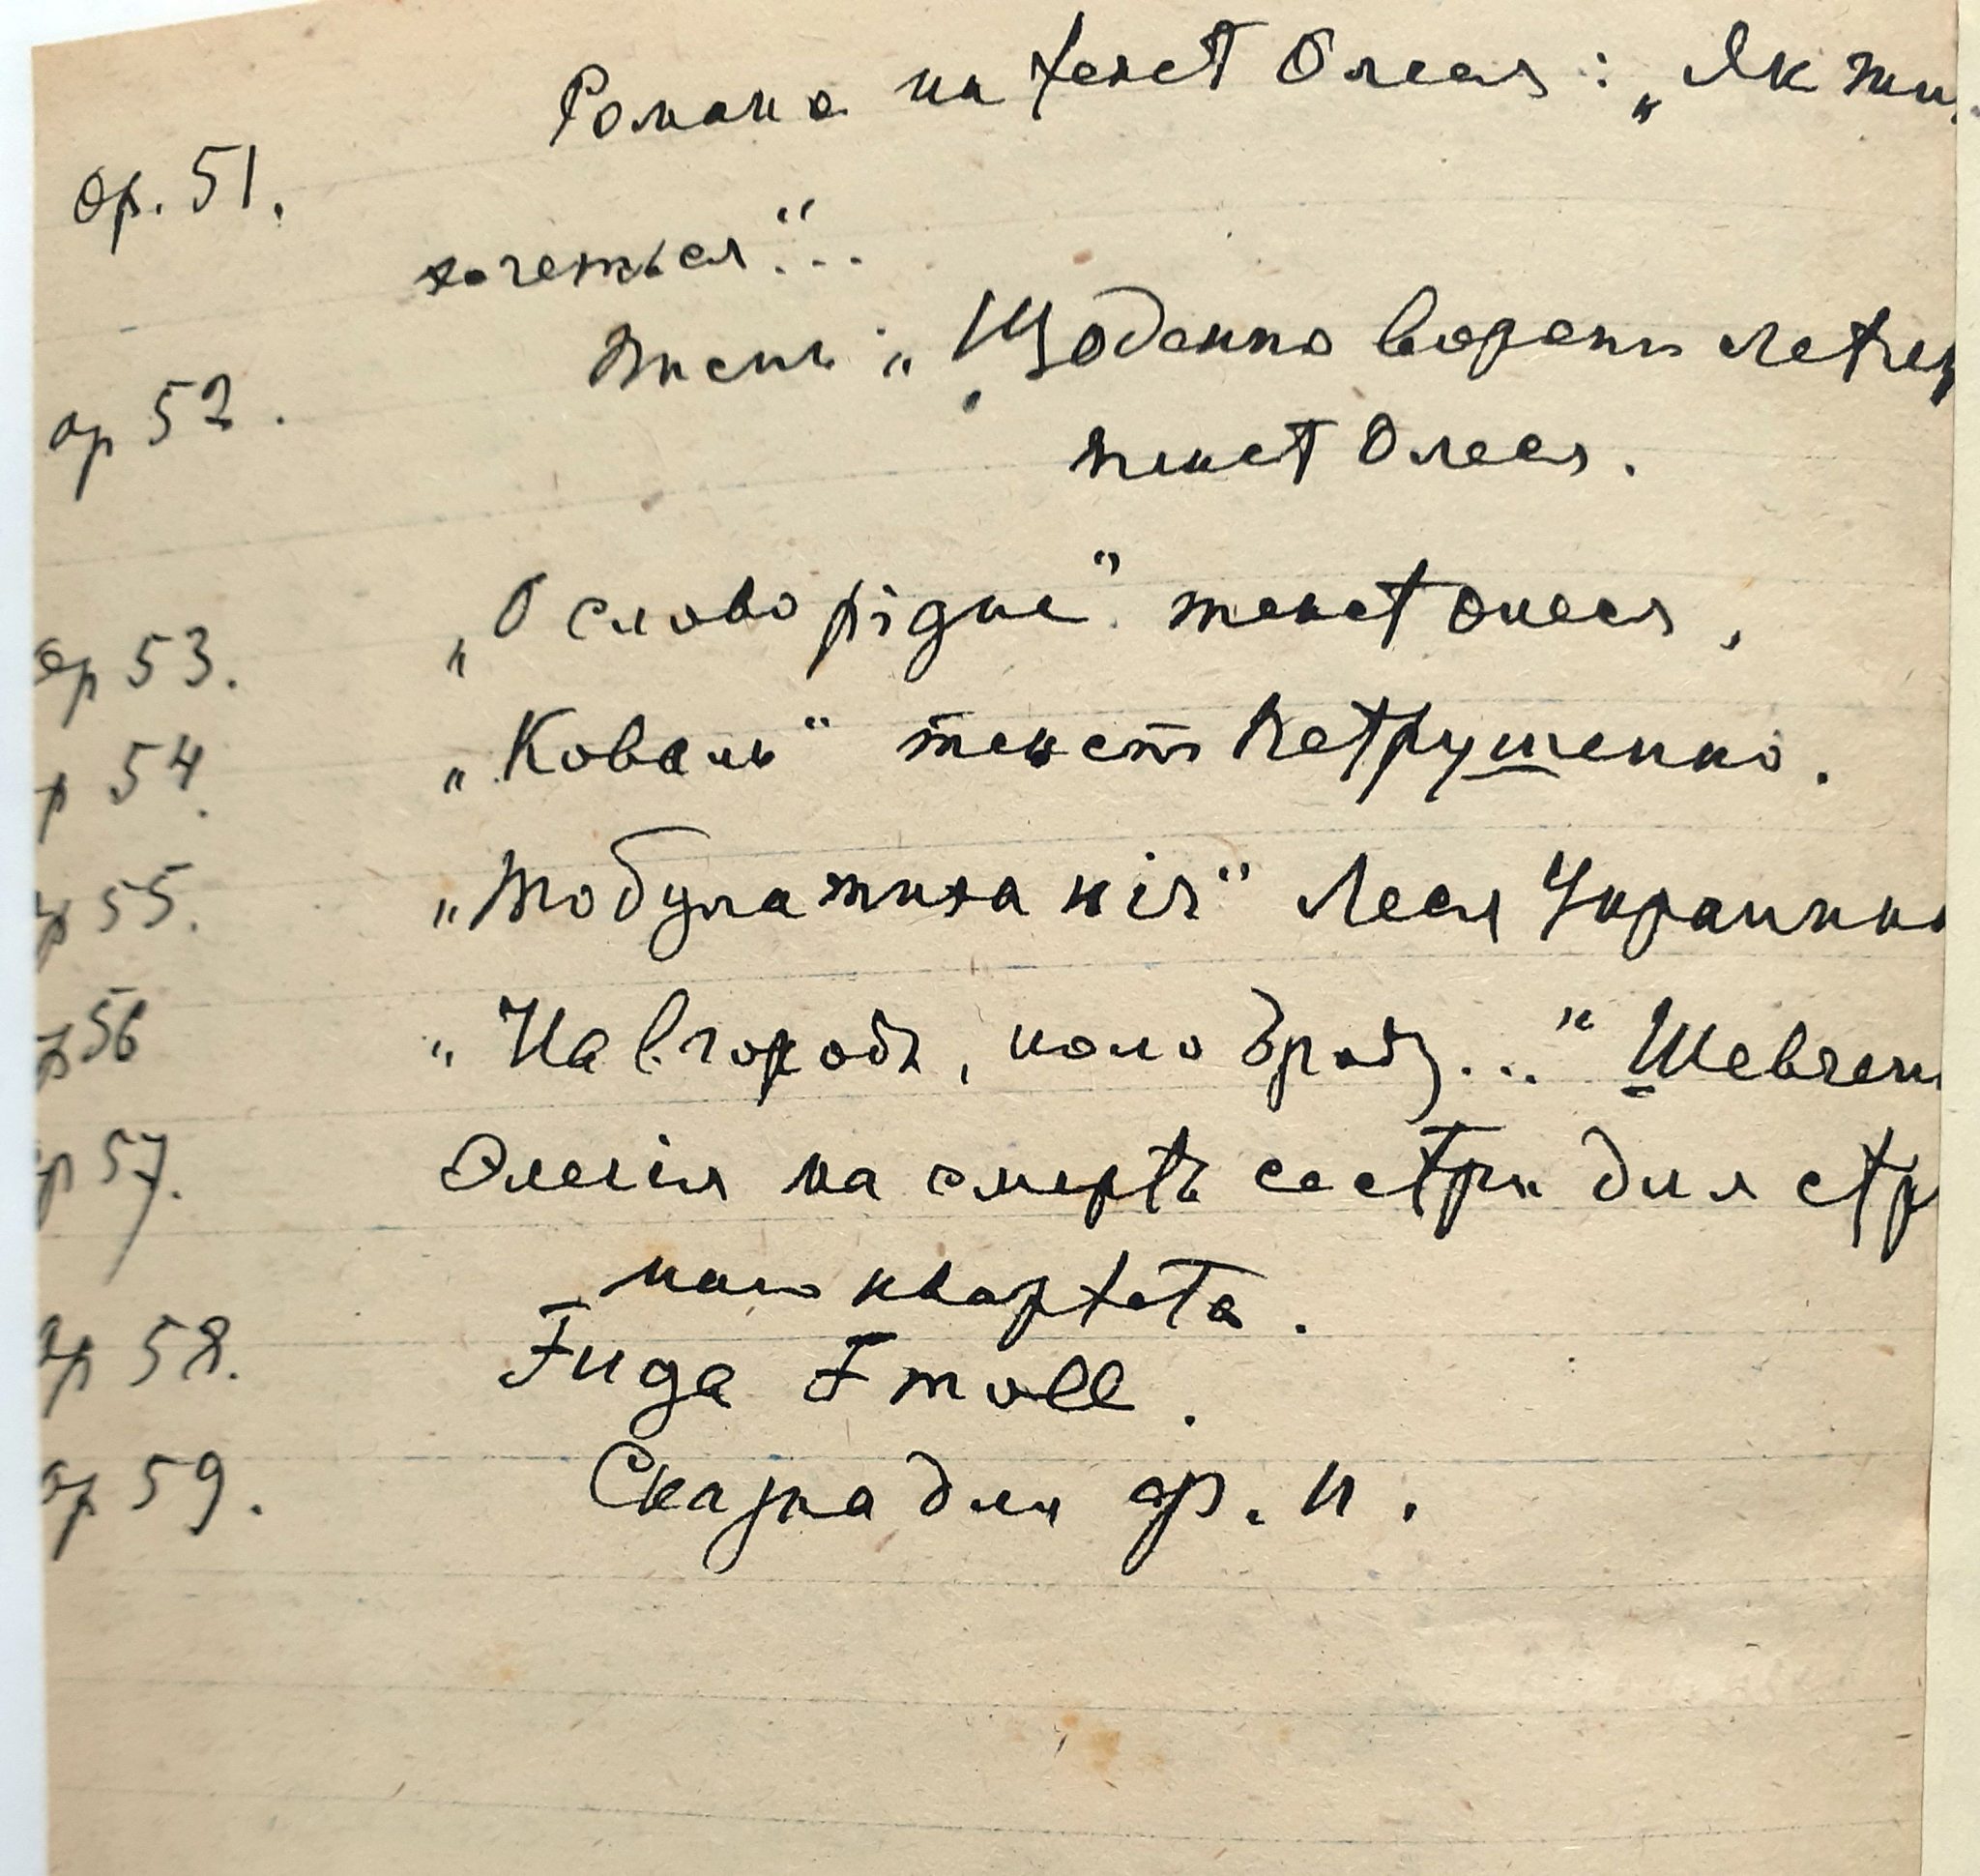 Романс на текст Олеся: „Як жи
op. 51.
хочеться"...
op 52. Пісня: „Щоденно ворони летя
текст Олеся.
op 53. „О слово рідне". текст Олеся,
p 54. „Коваль" текст Петрушенко.
op 55. „То була тиха ніч" Леся Украинки
op 56 „На вгороді, коло броду..." Шевчен
op 57. Элегія на смерть сестри для стр
ного квартета.
op 58. Fuga F moll.
op 59. Сказка для фр. п.